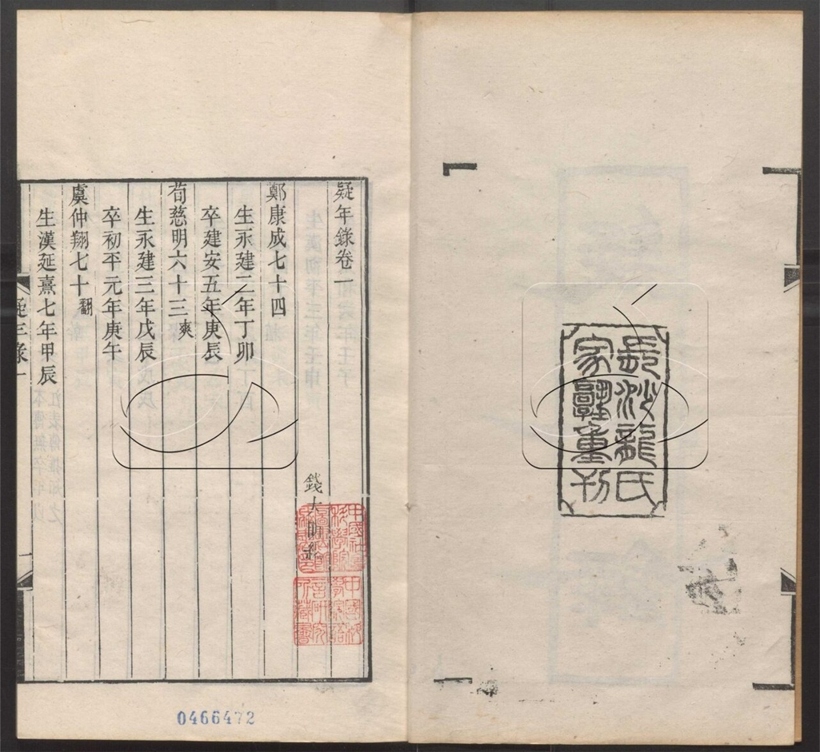 長沙龍氏
家塾重刊
疑年錄卷一
錢大昕
鄭康成七十四
生永建二年丁卯
卒建安五年庚辰
荀慈明六十三爽
生永建三年戊辰
卒初平元年庚午
虞仲翔七十翻
生漢延熹七年甲辰
疑年錄一
一
0466472